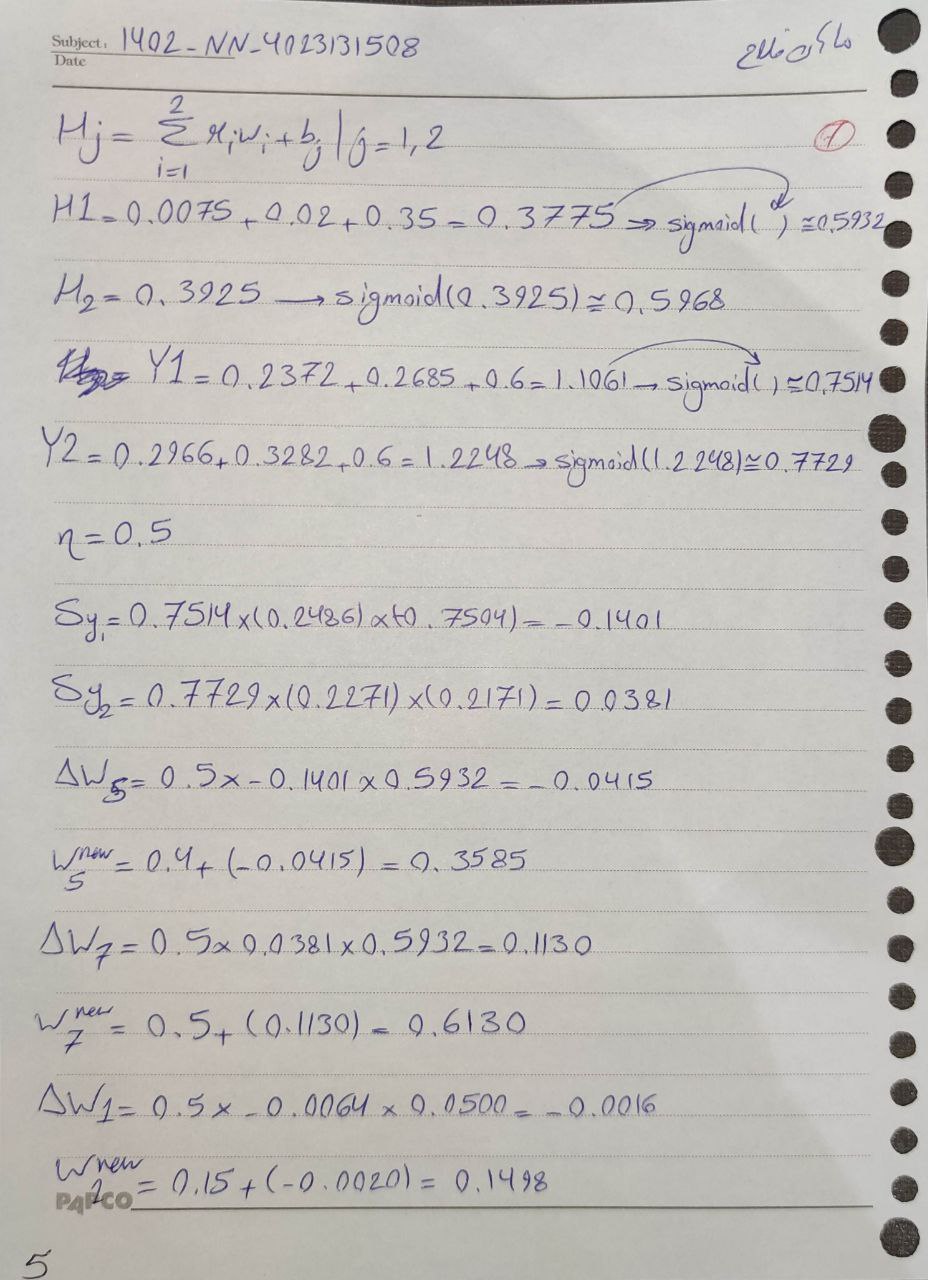 Subject: 1402-NN-4023131508
Date
Hj = Σ 2 i=1 xᵢwᵢ + bⱼ | j = 1, 2
1
H1 = 0.0075 + 0.02 + 0.35 = 0.3775 → sigmoid( ) ≅ 0.5932
H₂ = 0.3925 → sigmoid(0.3925) ≅ 0.5968
Y1 = 0.2372 + 0.2685 + 0.6 = 1.1061 → sigmoid( ) ≅ 0.7514
Y2 = 0.2966 + 0.3282 + 0.6 = 1.2248 → sigmoid(1.2248) ≅ 0.7729
η = 0.5
Sy₁ = 0.7514 × (0.2486) × (-0.7504) = -0.1401
Sy₂ = 0.7729 × (0.2271) × (0.2171) = 0.0381
ΔW₅ = 0.5 × -0.1401 × 0.5932 = -0.0415
W₅ⁿᵉʷ = 0.4 + (-0.0415) = 0.3585
ΔW₇ = 0.5 × 0.0381 × 0.5932 = 0.1130
W₇ⁿᵉʷ = 0.5 + (0.1130) = 0.6130
ΔW1 = 0.5 × -0.0064 × 0.0500 = -0.0016
W₂ⁿᵉʷ = 0.15 + (-0.0020) = 0.1498
PAPCO
5